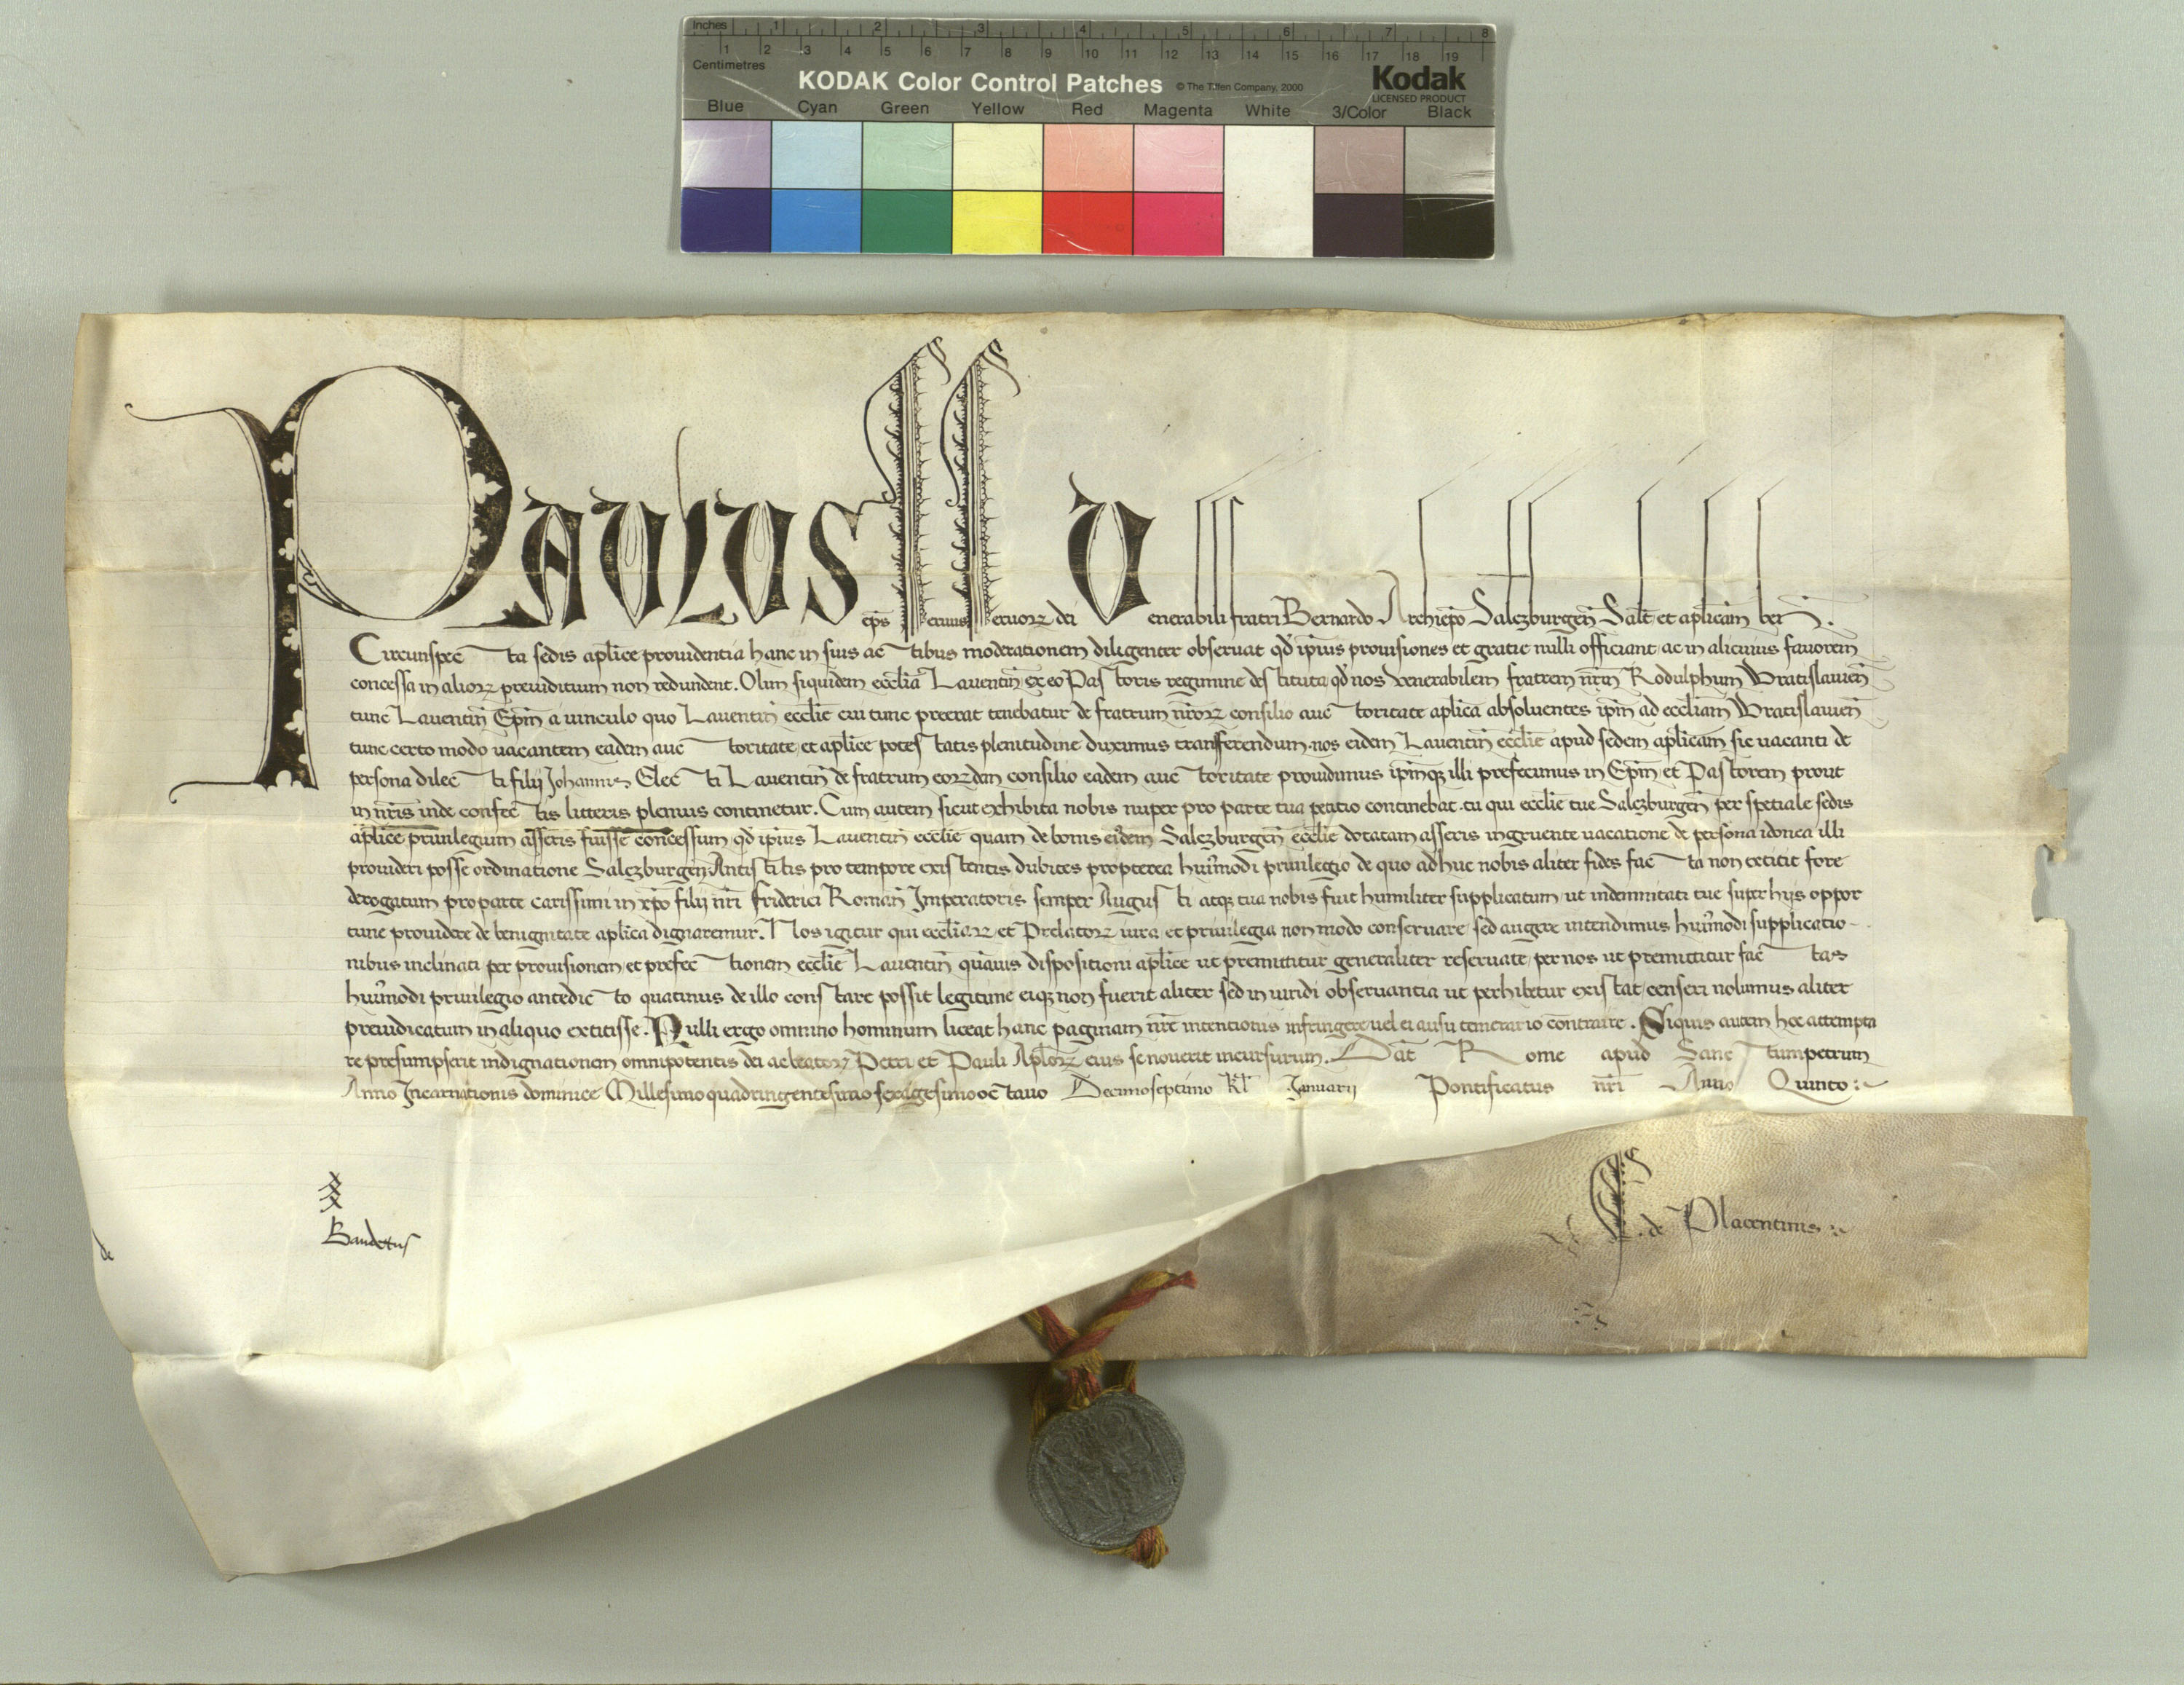 Inches 1 2 3 4 5 6 7 8
1 2 3 4 5 6 7 8 9 10 11 12 13 14 15 16 17 18 19
Centimetres
KODAK Color Control Patches © The Tiffen Company, 2000 Kodak
LICENSED PRODUCT
Blue Cyan Green Yellow Red Magenta White 3/Color Black
Paulus ep̄s seruus seruoꝝ dei Venerabili fratri Bernardo Archiep̄o Salczburgeñ Salt̄ et ap̄licam̄ beñ.
Circunspecta sedis ap̄lice prouidentia hanc in suis actibus moderationem diligenter obseruat qd̄ ip̄ius prouisiones et gratie nulli officiant ac in alicuius fauorem
concessa in alioꝝ preiuditium non redundent. Olim siquidem eccl̄ia Lauentiñ ex eo Pastoris regimine destituta qd̄ nos venerabilem fratrem nr̄m Rodulphum Wratislauieñ
tunc Lauentiñ Ep̄m a uinculo quo Lauentiñ eccl̄ie cui tunc preerat tenebatur de fratrum nr̄oꝝ consilio auctoritate aplica absoluentes ip̄m ad eccl̄iam Wratislauieñ
tunc certo modo uacantem eadem auctoritate et ap̄lice potestatis plenitudine duximus transferendum nos eidem Lauentiñ eccl̄ie apud sedem ap̄licam sic uacanti de
persona dilecti filij Johannis Electi Lauentiñ de fratrum eoꝝdem consilio eadem auctoritate prouidimus ip̄mqꝫ illi prefecimus in Ep̄m et Pastorem prout
in nr̄is inde confectis litteris plenius continetur. Cum autem sicut exhibita nobis nuper pro parte tua petitio continebat tu qui eccl̄ie tue Salczburgeñ per spetiale sedis
ap̄lice priuilegium asseris fuisse concessum qd̄ ip̄ius Lauentiñ eccl̄ie quam de bonis eiusdem Salczburgeñ eccl̄ie dotatam asseris ingruente uacatione de persona idonea illi
prouideri posse ordinatione Salczburgeñ Antistitis pro tempore existentis dubites propterea huiūmodi priuilegio de quo adhuc nobis aliter fides facta non extitit fore
derogatum pro parte carissimi in xp̄o filij nr̄i Friderici Romañ Imperatoris semper Augusti atqꝫ tua nobis fuit humiliter supplicatum ut indemnitati tue super hijs oppor
tune prouidere de benignitate aplica dignaremur. Nos igitur qui eccl̄iaꝝ et Prelatoꝝ iura et priuilegia non modo conseruare sed augere intendimus huiūmodi supplicatio-
nibus inclinati per prouisionem et prefectionem eccl̄ie Lauentiñ quāuis dispositioni ap̄lice ut premittitur generaliter reseruate per nos ut premittitur factas
huiūmodi priuilegio antedicto quatinus de illo constare possit legitime eiqꝫ non fuerit aliter sed in uiridi obseruantia ut perhibetur existat censeri nolumus aliter
preiudicatum in aliquo extitisse. Nulli ergo omnino hominum liceat hanc paginam nr̄e intentionis infringere uel ei ausu temerario contraire. Siquis autem hoc attempta
re presumpserit indignationem omnipotentis dei ac beatoꝝ Petri et Pauli Apl̄oꝝ eius se nouerit incursurum. Dat̄ Rome apud Sanctumpetrum
Anno Incarnationis dominice Millesimoquadringentesimosexagesimooctauo Decimoseptimo kl̄ Januarij Pontificatus nr̄i Anno Quinto
xxx
Gaudetus
de
de Placentinis